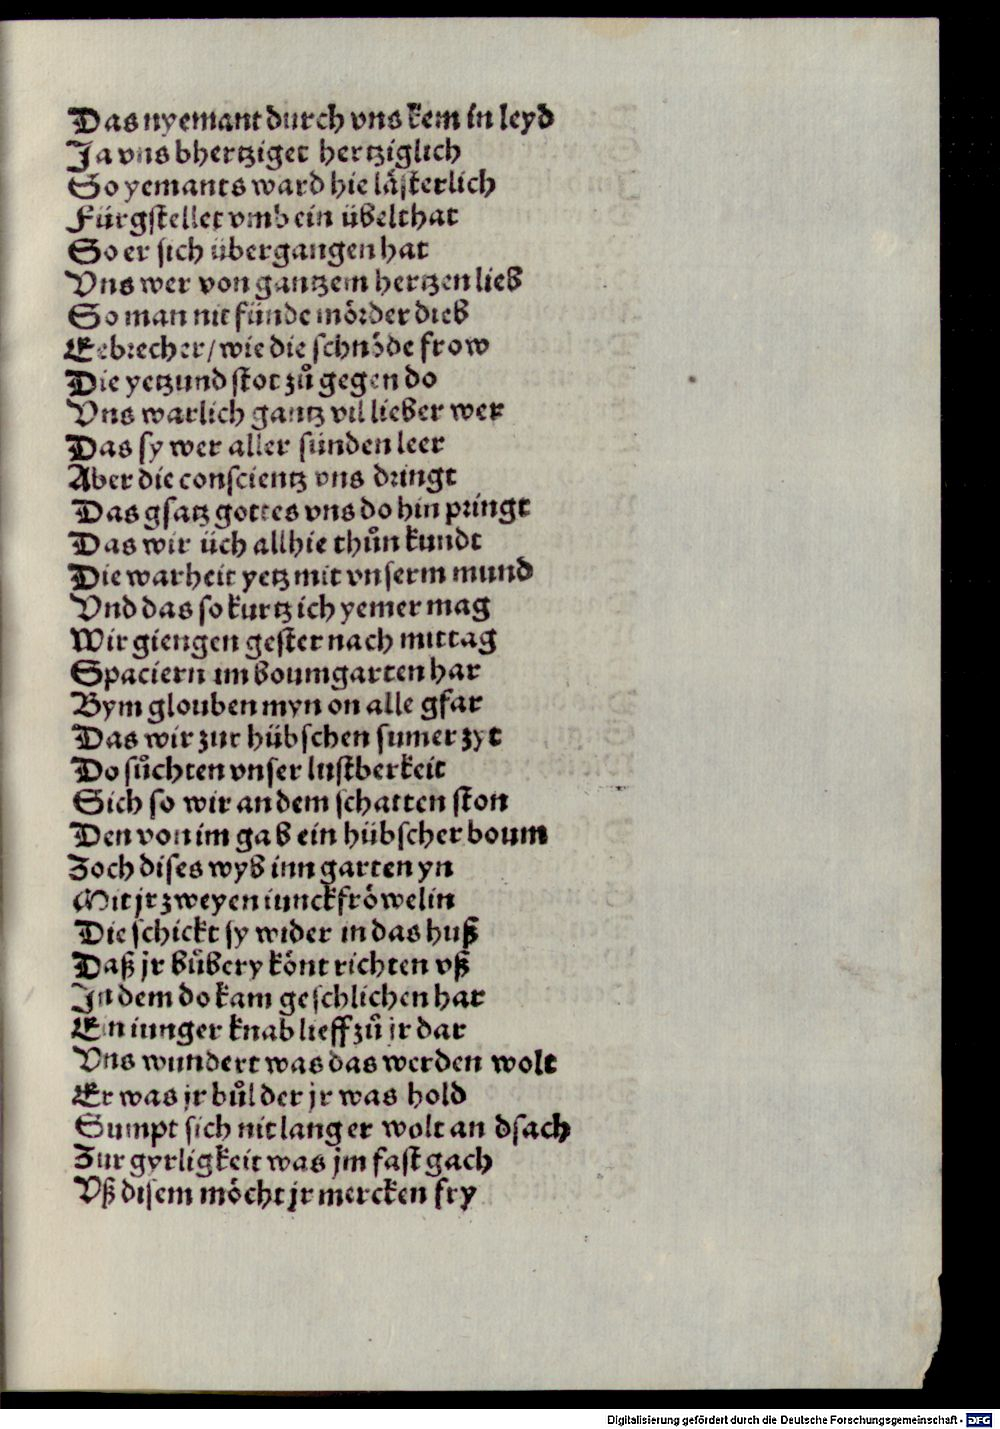 Das nyemant durch vns kem in leyd
Ja vns bhertziget hertziglich
So yemants ward hie lästerlich
Fürgstellet vmb ein übelthat
So er sich übergangen hat
Vns wer von gantzem hertzen lieb
So man nit fünde mörder dieb
Eebrecher/ wie die schnöde frow
Die yetzund stot zů gegen do
Vns warlich gantz vil lieber wer
Das sy wer aller sünden leer
Aber die conscientz vns dringt
Das gsatz gottes vns do hin pringt
Das wir üch allhie thůn kundt
Die warheit yetz mit vnserm mund
Vnd das so kurtz ich yemer mag
Wir giengen gester nach mittag
Spaciern im boumgarten har
Bym glouben myn on alle gfar
Das wir zur hübschen sumer zyt
Do sůchten vnser lustberkeit
Sich so wir an dem schatten ston
Den von im gab ein hübscher boum
Zoch dises wyb inn garten yn
Mit jr zweyen iunckfröwelin
Die schickt sy wider in das huß
Daß jr bůbery könt richten vß
In dem do kam geschlichen har
Ein iunger knab lieff zů jr dar
Vns wundert was das werden wolt
Er was jr bůl der jr was hold
Sumpt sich nit lang er wolt an dsach
Zur gyrligkeit was jm fast gach
Vß disem möcht jr mercken fry
Digitalisierung gefördert durch die Deutsche Forschungsgemeinschaft - DFG